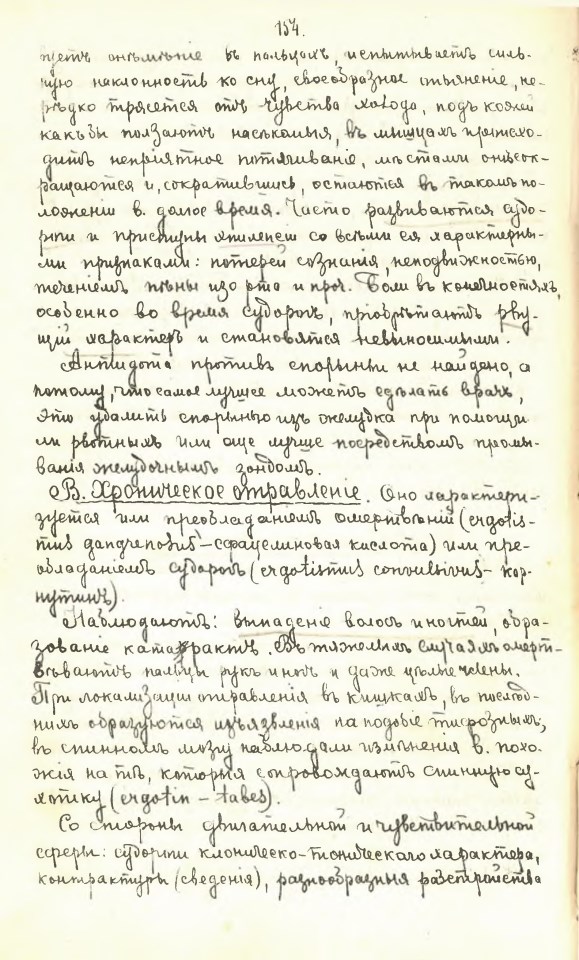 154.
чуетъ онѣмѣніе въ пальцахъ, испытываетъ силь-
ную наклонность ко сну, своеобразное опьяненіе, не-
рѣдко трясется отъ чувства холода, подъ кожей
какъ бы ползаютъ насѣкомыя, въ мышцахъ происхо-
дитъ непріятное потягиваніе, мѣстами онѣ сок-
ращаются и, сократившись, остаются въ такомъ по-
ложеніи в. долгое время. Часто развиваются судо-
роги и приступы эпилепсіи со всѣми ея характерны-
ми признаками: потерей сознанія, неподвижностью,
теченіемъ пѣны изо рта и проч. Боли въ конечностяхъ,
особенно во время судорогъ, пріобрѣтаютъ рву-
щій характеръ и становятся невыносимыми.
Антидота противъ спорыньи не найдено, а
потому, что самое лучшее можетъ сдѣлать врачъ,
это удалить спорынью изъ желудка при помощи
ли рвотныхъ или еще лучше посредствомъ промы-
ванія желудочнымъ зондомъ.
В. Хроническое отравленіе. Оно характери-
зуется или преобладаніемъ омертвѣній (ergotis-
mus gangrenosus – сфацелиновая кислота) или пре-
обладаніемъ судорогъ (ergotismus convulsivus – кор-
нутинъ).
Наблюдаютъ: выпаденіе волосъ и ногтей, обра-
зованіе катарактъ. Въ тяжелыхъ случаяхъ омерт-
вѣваютъ пальцы рукъ и ногъ и даже цѣлые члены.
При локализаціи отравленія въ кишкахъ, въ послѣд-
нихъ образуются изъязвленія на подобіе тифозныхъ,
въ спинномъ мозгу наблюдали измѣненія в. похо-
жія на тѣ, которыя сопровождаютъ спинную су-
хотку (ergotin – tabes).
Со стороны двигательной и чувствительной
сферы: судороги клоническо-тоническаго характера,
контрактуры (сведенія), разнообразныя разстройства